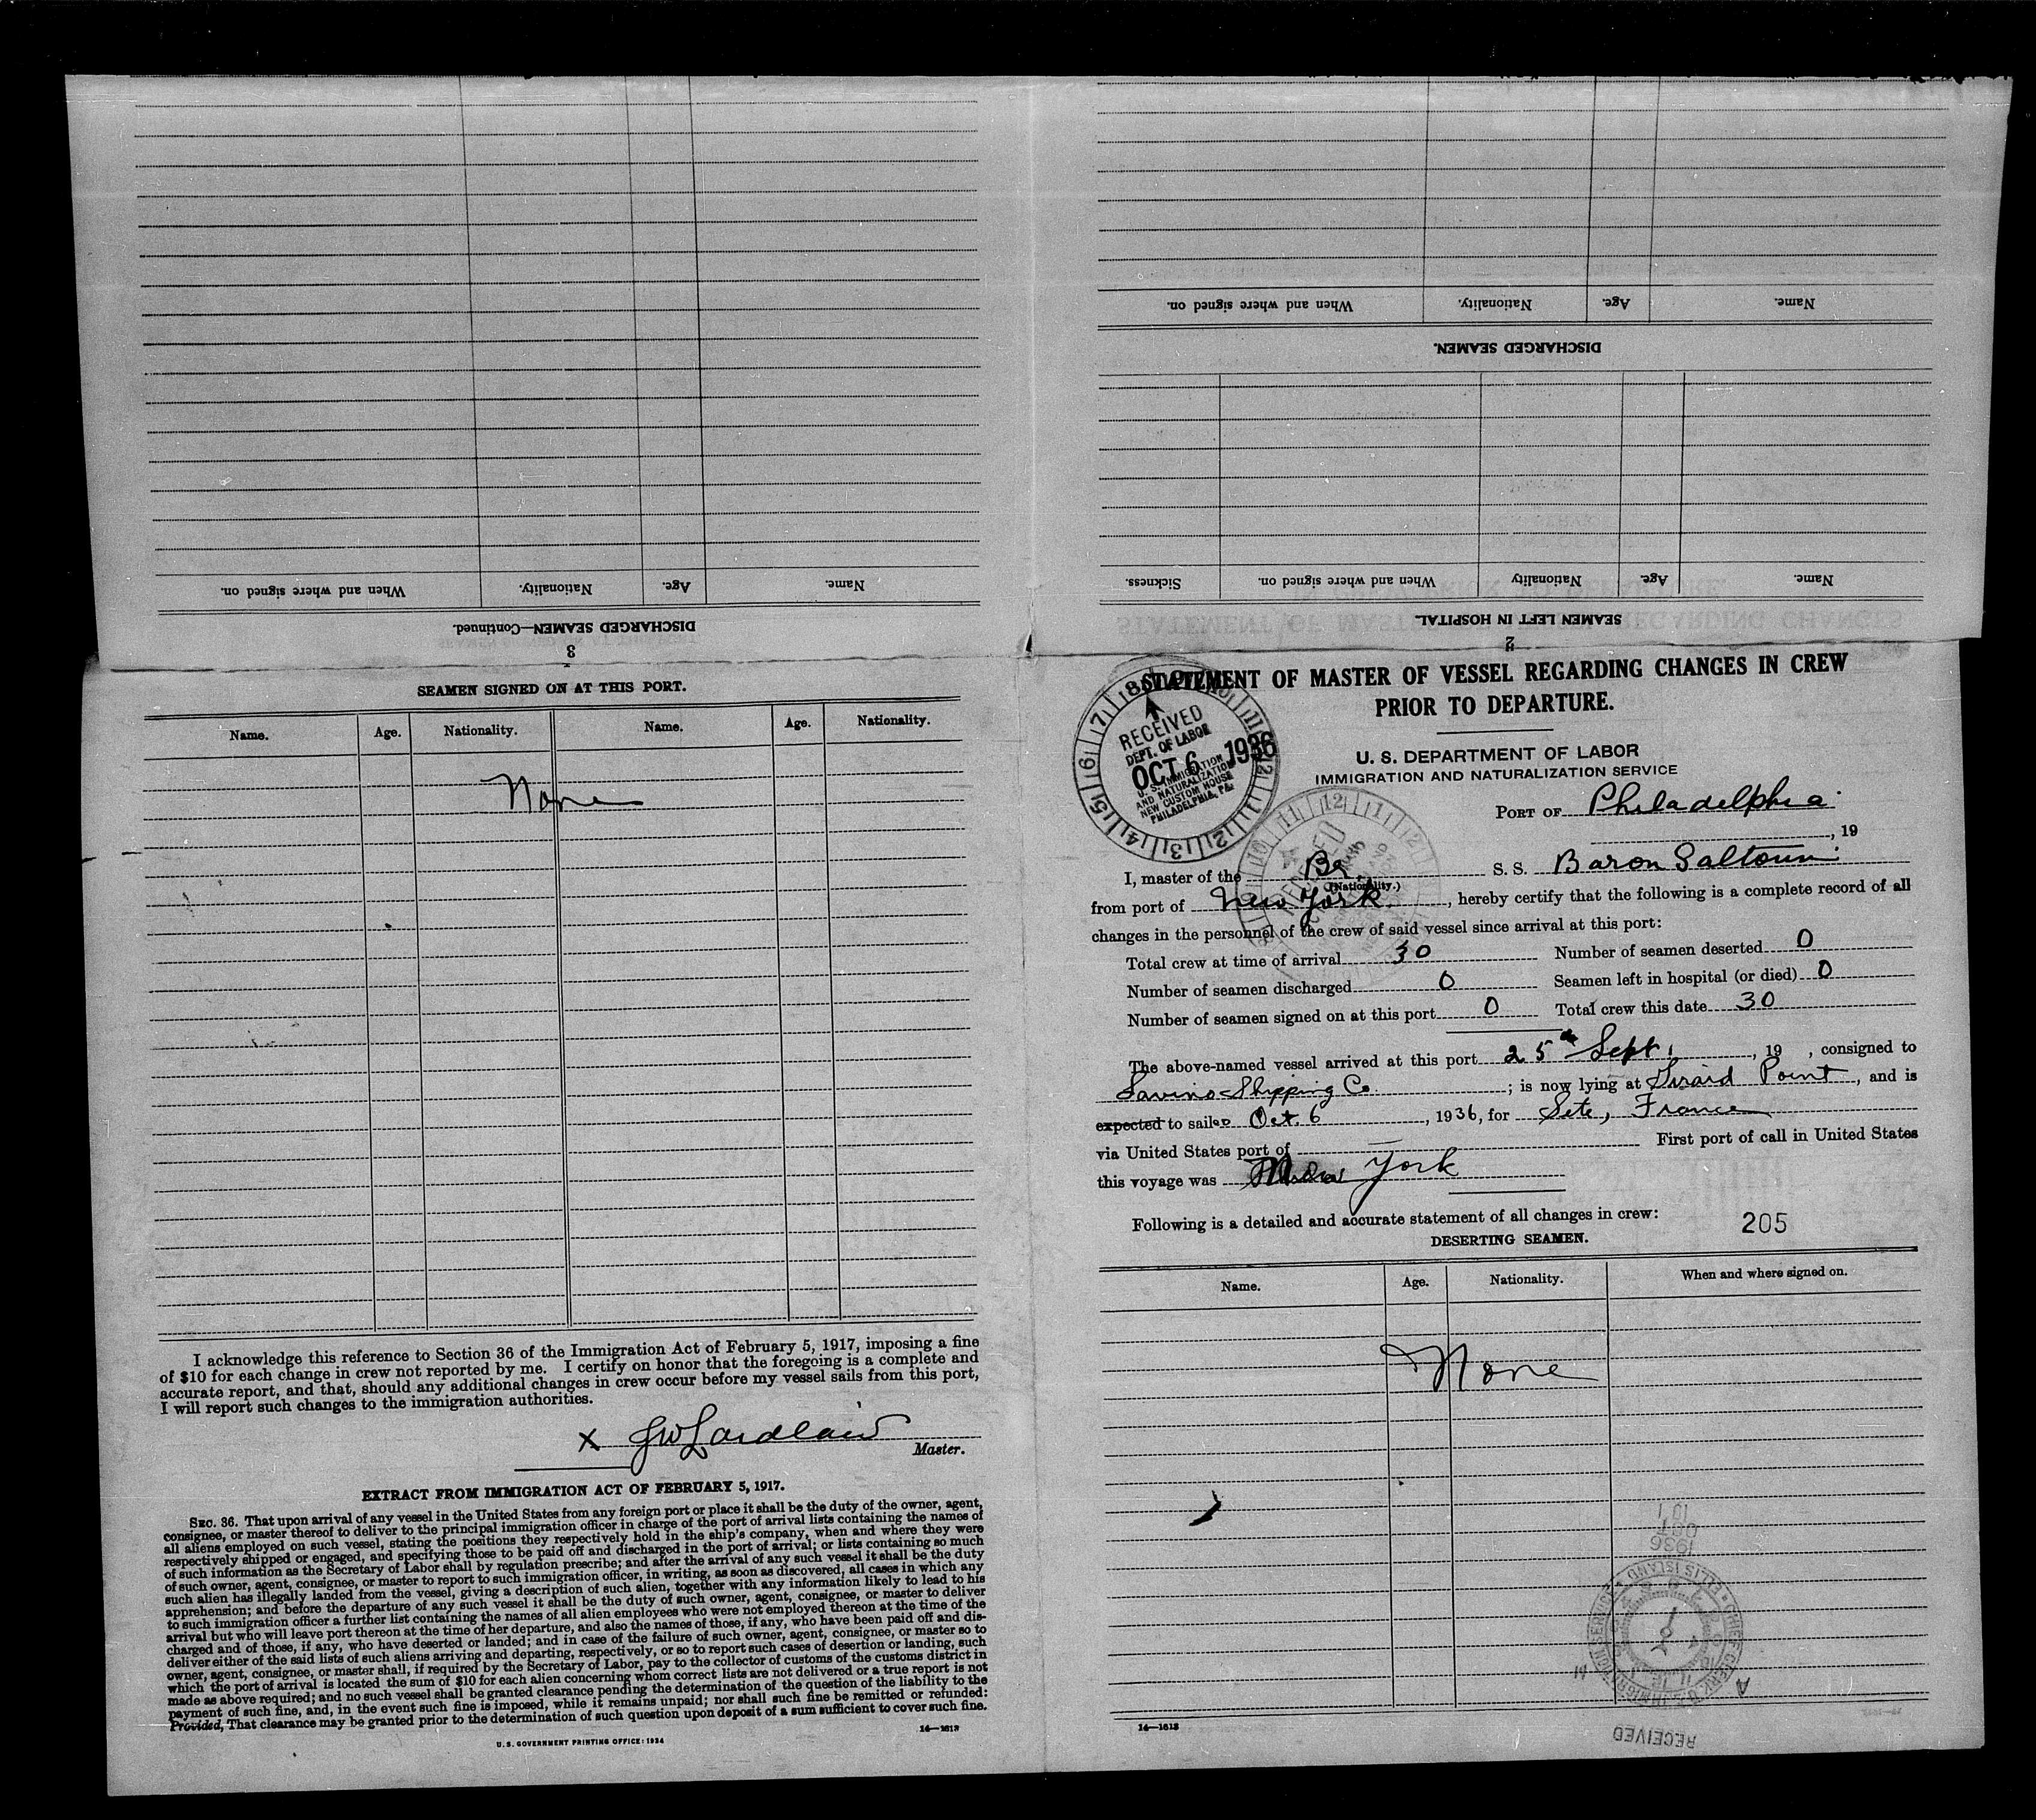 When and where signed on. Nationality. Age. Name.
DISCHARGED SEAMEN—Continued.
3
When and where signed on. Nationality. Age. Name.
DISCHARGED SEAMEN.
Sickness. When and where signed on. Nationality Age. Name.
SEAMEN LEFT IN HOSPITAL.
2
SEAMEN SIGNED ON AT THIS PORT.
Name. Age. Nationality. Name. Age. Nationality.
None
I acknowledge this reference to Section 36 of the Immigration Act of February 5, 1917, imposing a fine
of $10 for each change in crew not reported by me. I certify on honor that the foregoing is a complete and
accurate report, and that, should any additional changes in crew occur before my vessel sails from this port,
I will report such changes to the immigration authorities.
X JW Laidlaw
Master.
EXTRACT FROM IMMIGRATION ACT OF FEBRUARY 5, 1917.
SEC. 36. That upon arrival of any vessel in the United States from any foreign port or place it shall be the duty of the owner, agent,
consignee, or master thereof to deliver to the principal immigration officer in charge of the port of arrival lists containing the names of
all aliens employed on such vessel, stating the positions they respectively hold in the ship's company, when and where they were
respectively shipped or engaged, and specifying those to be paid off and discharged in the port of arrival; or lists containing so much
of such information as the Secretary of Labor shall by regulation prescribe; and after the arrival of any such vessel it shall be the duty
of such owner, agent, consignee, or master to report to such immigration officer, in writing, as soon as discovered, all cases in which any
such alien has illegally landed from the vessel, giving a description of such alien, together with any information likely to lead to his
apprehension; and before the departure of any such vessel it shall be the duty of such owner, agent, consignee, or master to deliver
to such immigration officer a further list containing the names of all alien employees who were not employed thereon at the time of the
arrival but who will leave port thereon at the time of her departure, and also the names of those, if any, who have been paid off and dis-
charged and of those, if any, who have deserted or landed; and in case of the failure of such owner, agent, consignee, or master so to
deliver either of the said lists of such aliens arriving and departing, respectively, or so to report such cases of desertion or landing, such
owner, agent, consignee, or master shall, if required by the Secretary of Labor, pay to the collector of customs of the customs district in
which the port of arrival is located the sum of $10 for each alien concerning whom correct lists are not delivered or a true report is not
made as above required; and no such vessel shall be granted clearance pending the determination of the question of the liability to the
payment of such fine, and, in the event such fine is imposed, while it remains unpaid; nor shall such fine be remitted or refunded:
Provided, That clearance may be granted prior to the determination of such question upon deposit of a sum sufficient to cover such fine.
14—1618
U.S. GOVERNMENT PRINTING OFFICE: 1934
STATEMENT OF MASTER OF VESSEL REGARDING CHANGES IN CREW
PRIOR TO DEPARTURE.
RECEIVED
DEPT. OF LABOR
OCT 6 1936
U. S. IMMIGRATION
AND NATURALIZATION
NEW CUSTOM HOUSE
PHILADELPHIA, PA.
U. S. DEPARTMENT OF LABOR
IMMIGRATION AND NATURALIZATION SERVICE
PORT OF Philadelphia
, 19
I, master of the Br. S. S. Baron Saltoun
(Nationality.)
from port of New York, hereby certify that the following is a complete record of all
changes in the personnel of the crew of said vessel since arrival at this port:
Total crew at time of arrival 30 Number of seamen deserted 0
Number of seamen discharged 0 Seamen left in hospital (or died) 0
Number of seamen signed on at this port 0 Total crew this date 30
The above-named vessel arrived at this port 25th Sept. , 19 , consigned to
Savino Shipping Co ; is now lying at Girard Point, and is
expected to sail Oct. 6, 1936, for Sete, France
via United States port of — First port of call in United States
this voyage was New York
Following is a detailed and accurate statement of all changes in crew:
205
DESERTING SEAMEN.
Name. Age. Nationality. When and where signed on.
None
1936
OCT
ELLIS ISLAND
14—1618
RECEIVED